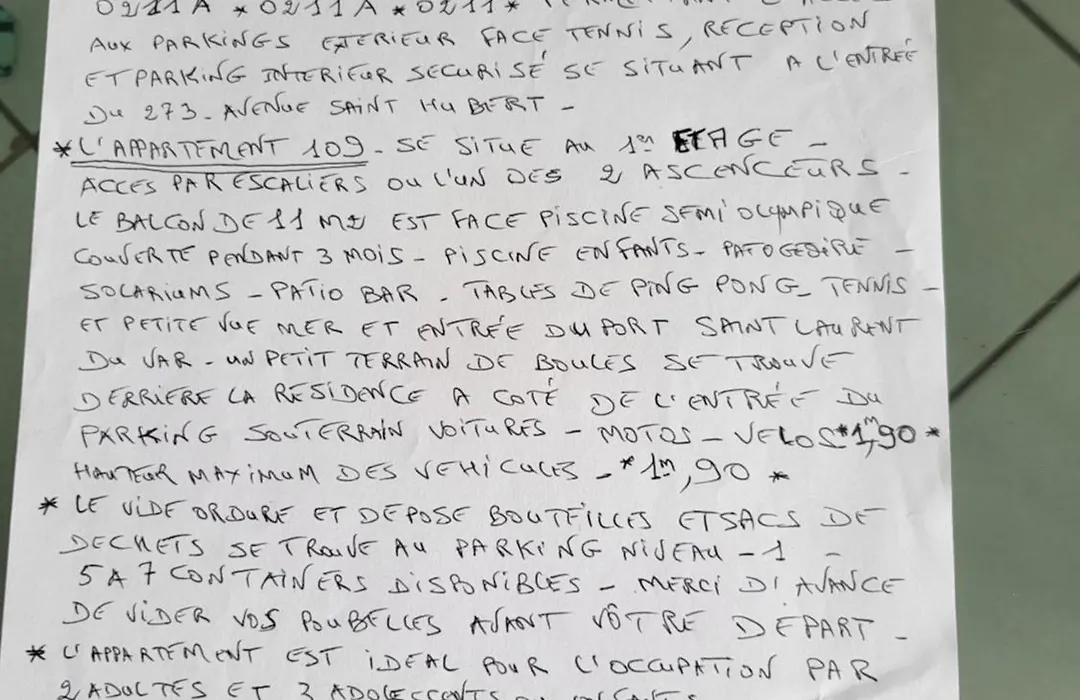 0211A * 0211A * 0211 *
AUX PARKINGS EXTERIEUR FACE TENNIS, RECEPTION
ET PARKING INTERIEUR SECURISÉ SE SITUANT A L'ENTRÉE
DU 273. AVENUE SAINT HUBERT -
* L'APPARTEMENT 109 - SE SITUE AU 1er ETAGE -
ACCES PAR ESCALIERS OU L'UN DES 2 ASCENCEURS -
LE BALCON DE 11 M2 EST FACE PISCINE SEMI OLYMPIQUE
COUVERTE PENDANT 3 MOIS - PISCINE ENFANTS -
SOLARIUMS - PATIO BAR - TABLES DE PING PONG - TENNIS -
ET PETITE VUE MER ET ENTRÉE DU PORT SAINT LAURENT
DU VAR - UN PETIT TERRAIN DE BOULES SE TROUVE
DERRIERE LA RESIDENCE A COTÉ DE L'ENTRÉE DU
PARKING SOUTERRAIN VOITURES - MOTOS - VELOS *1m,90 *
HAUTEUR MAXIMUM DES VEHICULES - * 1m,90 *
* LE VIDE ORDURE ET DEPOSE BOUTEILLES ET SACS DE
DECHETS SE TROUVE AU PARKING NIVEAU -1 -
5 A 7 CONTAINERS DISPONIBLES - MERCI D'AVANCE
DE VIDER VOS POUBELLES AVANT VÔTRE DEPART -
* L'APPARTEMENT EST IDEAL POUR L'OCCUPATION PAR
2 ADULTES ET 3 ADOLESCENTS